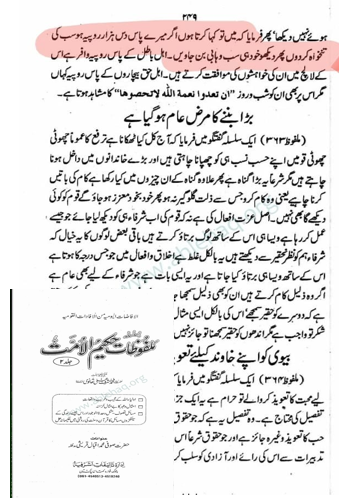 ۲۴۹
ہوئے نہیں دیکھا‘ پھر فرمایا کہ میں تو کہا کرتا ہوں اگر میرے پاس دس ہزار روپیہ ہو سب کی
تنخواہ کر دوں پھر دیکھو خود ہی سب وہابی بن جاویں۔ اہل باطل کے پاس روپیہ وافر ہے اس
کے لالچ میں ان کی خواہشوں کی موافقت کرتے ہیں۔ اہل حق بیچاروں کے پاس روپیہ کہاں
مگر اس پر بھی ان کو شب و روز ”ان تعدوا نعمة الله لاتحصوها“ کا مشاہدہ ہوتا ہے۔
بڑا بننے کا مرض عام ہو گیا ہے
(ملفوظ ۳۶۳) ایک سلسلہ گفتگو میں فرمایا کہ آج کل یہ بھی ترفع کا عموماً
چھوٹی قومیں اپنے حسب نسب کو چھپانا چاہتی ہیں اور بڑے خاندانوں میں داخل ہونا
چاہتے ہیں مگر شرعاً یہ بڑا گناہ ہے پھر علاوہ گناہ کے ان چیزوں میں کیا رکھا ہے کام کی باتیں
کرنا چاہیے یعنی وہ کام کرو جس سے ذلت گلوگیر نہ ہو پھر خود بخود معزز ہو جاؤ گے قوم کو کوئی
دیکھے گا بھی نہیں۔ اصل عزت افعال کی ہے نہ کہ قوم کی اب شرفاء ہی کو دیکھ لیا جائے جو جیسے
عمل کر رہا ہے ویسا ہی اس کے ساتھ لوگ برتاؤ کرتے ہیں باقی بعض لوگوں کا یہ خیال کہ
شرفاء ہم کو نظر تحقیر سے دیکھتے ہیں یہ بالکل غلط ہے اخلاق و افعال میں جو جس درجہ کا ہوتا ہے
اس کے ساتھ ویسا ہی برتاؤ کیا جاتا ہے اور یہ ایسی بات ہے جو شرفاء کے لیے بھی عام ہے
اگر وہ ذلیل کام کرتے ہیں ان کو بھی ذلیل سمجھا
ہے کہ دوسرے کو حقیر سمجھے اس کی بالکل ایسی مثال
شکر تو واجب ہے مگر اندھوں کو حقیر سمجھنا تو جائز نہیں
بیوی کو اپنے خاوند کیلئے تعو
(ملفوظ ۳۶۴) ایک سلسلہ گفتگو میں فرمایا
لیے محبت کا تعویذ کرو الے تو حرام ہے یہ ایک جز
تفصیل کی محتاج ہے۔ وہ تفصیل یہ ہے کہ جو حقوق
حب کا تعویذ وغیرہ جائز ہے اور جو حقوق شرعاً اس
تدبیرات سے اس کی رائے اور آزادی کو سلب کر
ملفوظات حکیم الامت
جلد ۳